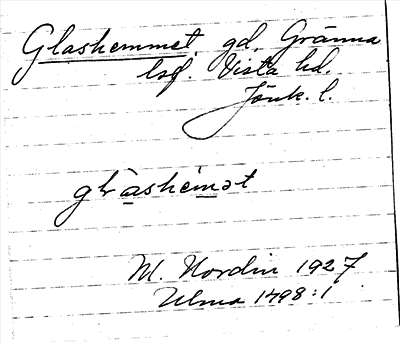 Glashemmet, gd, Gränna
lsf. Vista hd.
Jönk. l.
glashemət
M. Nordin 1927
Ulma 1498:1